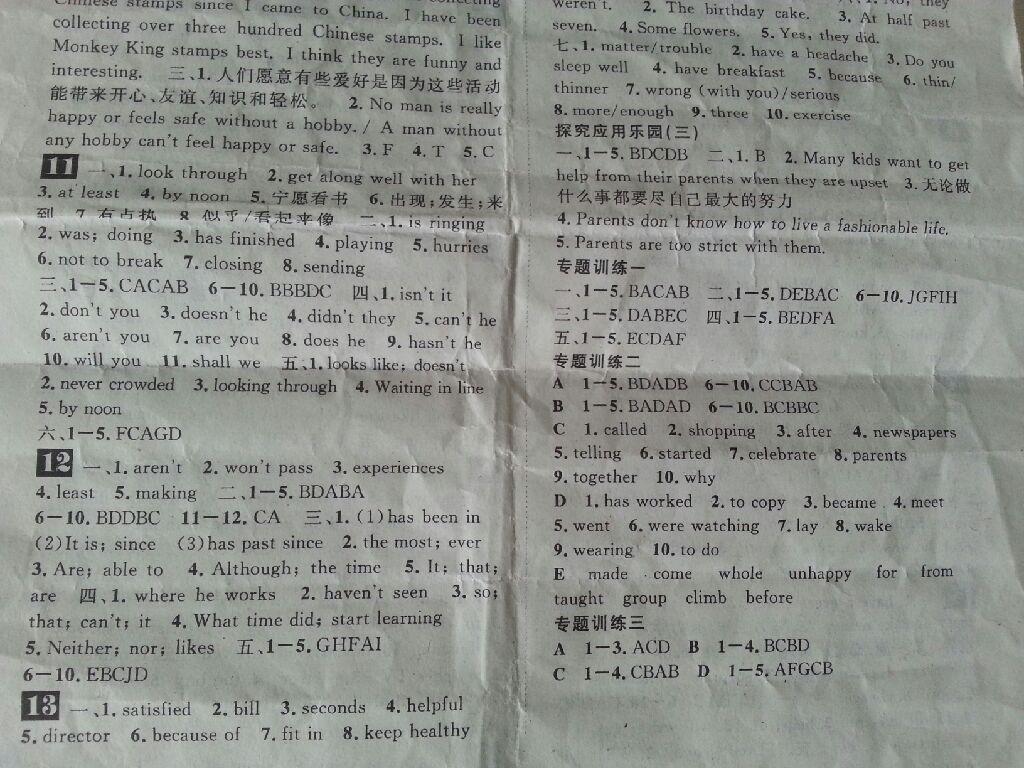 Chinese stamps since I came to China. I have been
collecting over three hundred Chinese stamps. I like
Monkey King stamps best. I think they are funny and
interesting. 三、1. 人们愿意有些爱好是因为这些活动
能带来开心、友谊、知识和轻松。 2. No man is really
happy or feels safe without a hobby. / A man without
any hobby can't feel happy or safe. 3. F 4. T 5. C
11 一、1. look through 2. get along well with her
3. at least 4. by noon 5. 宁愿看书 6. 出现;发生;来
到 7. 有点热 8. 似乎/看起来像 二、1. is ringing
2. was; doing 3. has finished 4. playing 5. hurries
6. not to break 7. closing 8. sending
三、1-5. CACAB 6-10. BBBDC 四、1. isn't it
2. don't you 3. doesn't he 4. didn't they 5. can't he
6. aren't you 7. are you 8. does he 9. hasn't he
10. will you 11. shall we 五、1. looks like; doesn't
2. never crowded 3. looking through 4. Waiting in line
5. by noon
六、1-5. FCAGD
12 一、1. aren't 2. won't pass 3. experiences
4. least 5. making 二、1-5. BDABA
6-10. BDDBC 11-12. CA 三、1. (1)has been in
(2)It is; since (3)has past since 2. the most; ever
3. Are; able to 4. Although; the time 5. It; that;
are 四、1. where he works 2. haven't seen 3. so;
that; can't; it 4. What time did; start learning
5. Neither; nor; likes 五、1-5. GHFAI
6-10. EBCJD
13 一、1. satisfied 2. bill 3. seconds 4. helpful
5. director 6. because of 7. fit in 8. keep healthy
weren't. 2. The birthday cake. 3. At half past
seven. 4. Some flowers. 5. Yes, they did.
七、1. matter/trouble 2. have a headache 3. Do you
sleep well 4. have breakfast 5. because 6. thin/
thinner 7. wrong (with you)/serious
8. more/enough 9. three 10. exercise
探究应用乐园(三)
一、1-5. BDCDB 二、1. B 2. Many kids want to get
help from their parents when they are upset 3. 无论做
什么事都要尽自己最大的努力
4. Parents don't know how to live a fashionable life.
5. Parents are too strict with them.
专题训练一
一、1-5. BACAB 二、1-5. DEBAC 6-10. JGFIH
三、1-5. DABEC 四、1-5. BEDFA
五、1-5. ECDAF
专题训练二
A 1-5. BDADB 6-10. CCBAB
B 1-5. BADAD 6-10. BCBBC
C 1. called 2. shopping 3. after 4. newspapers
5. telling 6. started 7. celebrate 8. parents
9. together 10. why
D 1. has worked 2. to copy 3. became 4. meet
5. went 6. were watching 7. lay 8. wake
9. wearing 10. to do
E made come whole unhappy for from
taught group climb before
专题训练三
A 1-3. ACD B 1-4. BCBD
C 1-4. CBAB D 1-5. AFGCB